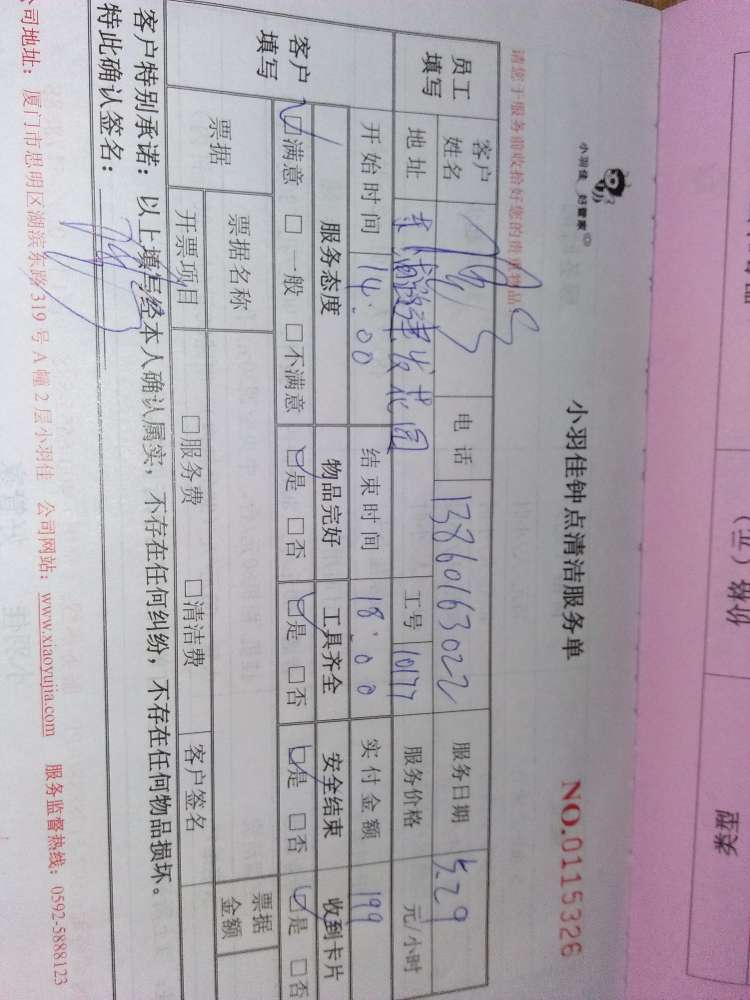 小羽佳 好管家
小羽佳钟点清洁服务单 NO.0115326
请您于服务前收拾好您的贵重物品
员工填写 客户姓名 电话 13860163022 服务日期 5.29
地址 建发花园 工号 10177 服务价格 元/小时
开始时间 14:00 结束时间 18:00 实付金额 199
客户填写 服务态度 物品完好 工具齐全 安全结束 收到卡片
☑满意 □一般 □不满意 ☑是 □否 ☑是 □否 ☑是 □否 ☑是 □否
票据 票据名称 票据金额
开票项目 □服务费 □清洁费 客户签名
客户特别承诺：以上填写经本人确认属实，不存在任何纠纷，不存在任何物品损坏。
特此确认签名：
公司地址：厦门市思明区湖滨东路319号A幢2层小羽佳 公司网站：www.xiaoyujia.com 服务监督热线：0592-5888123